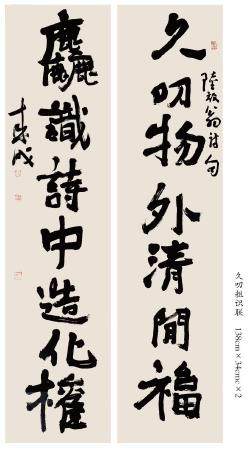 久叨物外清閒福
陸放翁詩句
麤識詩中造化權
久叨粗识联 138cm × 34cm × 2